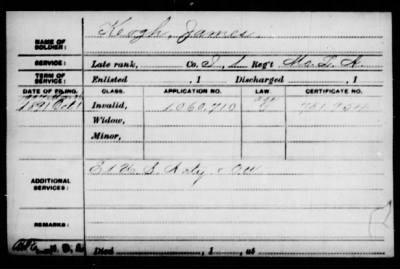 NAME OF SOLDIER: Keogh, James
SERVICE: Late rank, Co. I, Reg't
TERM OF SERVICE: Enlisted , 1 Discharged , 1
DATE OF FILING. CLASS. APPLICATION NO. CERTIFICATE NO.
1891 Oct 1 Invalid, 1.060.710
Widow,
Minor,
ADDITIONAL SERVICES:
REMARKS:
Died , 1 , at